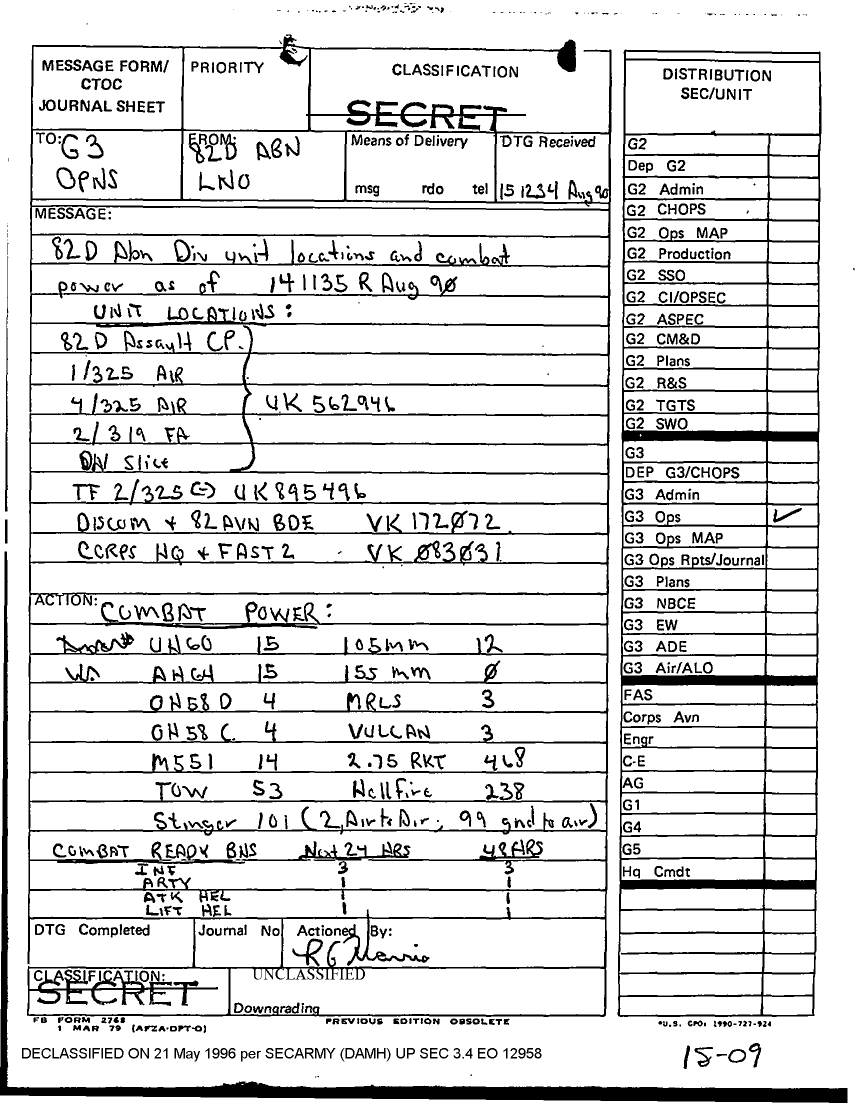 MESSAGE FORM/ CTOC JOURNAL SHEET
PRIORITY
CLASSIFICATION
SECRET
TO: G3 OPNS
FROM: 82D ABN LNO
Means of Delivery
msg rdo tel
DTG Received
151234 Aug 90
MESSAGE:
82D Abn Div unit locations and combat
power as of 141135 R Aug 90
UNIT LOCATIONS:
82D Assault CP.
1/325 AIR
4/325 AIR UK 562946
2/319 FA
Div Slice
TF 2/325 (-) UK 895496
DISCOM + 82 AVN BDE VK 172072
CORPS HQ + FAST 2 VK 083031
ACTION: COMBAT POWER:
UH60 15 105mm 12
AH64 15 155 mm 0
OH58 D 4 MRLS 3
OH58 C. 4 VULCAN 3
M551 14 2.75 RKT 468
TOW 53 Hellfire 238
Stinger 101 (2, Air to Air; 99 gnd to air)
COMBAT READY BNS Next 24 HRS 48 HRS
INF 3 3
ARTY 1 1
ATK HEL 1 1
LIFT HEL 1 1
DTG Completed
Journal No
Actioned By:
CLASSIFICATION:
SECRET
UNCLASSIFIED
Downgrading
FB FORM 2768
1 MAR 79 (AFZA-DPT-O)
PREVIOUS EDITION OBSOLETE
DISTRIBUTION
SEC/UNIT
G2
Dep G2
G2 Admin
G2 CHOPS
G2 Ops MAP
G2 Production
G2 SSO
G2 CI/OPSEC
G2 ASPEC
G2 CM&D
G2 Plans
G2 R&S
G2 TGTS
G2 SWO
G3
DEP G3/CHOPS
G3 Admin
G3 Ops ✓
G3 Ops MAP
G3 Ops Rpts/Journal
G3 Plans
G3 NBCE
G3 EW
G3 ADE
G3 Air/ALO
FAS
Corps Avn
Engr
C-E
AG
G1
G4
G5
Hq Cmdt
*U.S. GPO: 1990-727-924
DECLASSIFIED ON 21 May 1996 per SECARMY (DAMH) UP SEC 3.4 EO 12958
15-09